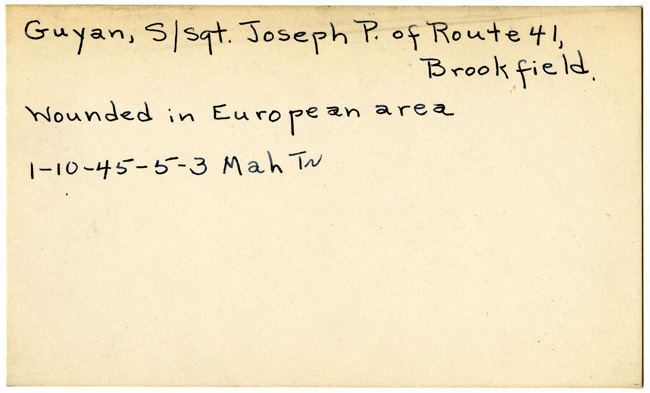 Guyan, S/sgt. Joseph P. of Route 41,
Brookfield.
Wounded in European area
1-10-45-5-3 Mah Tr